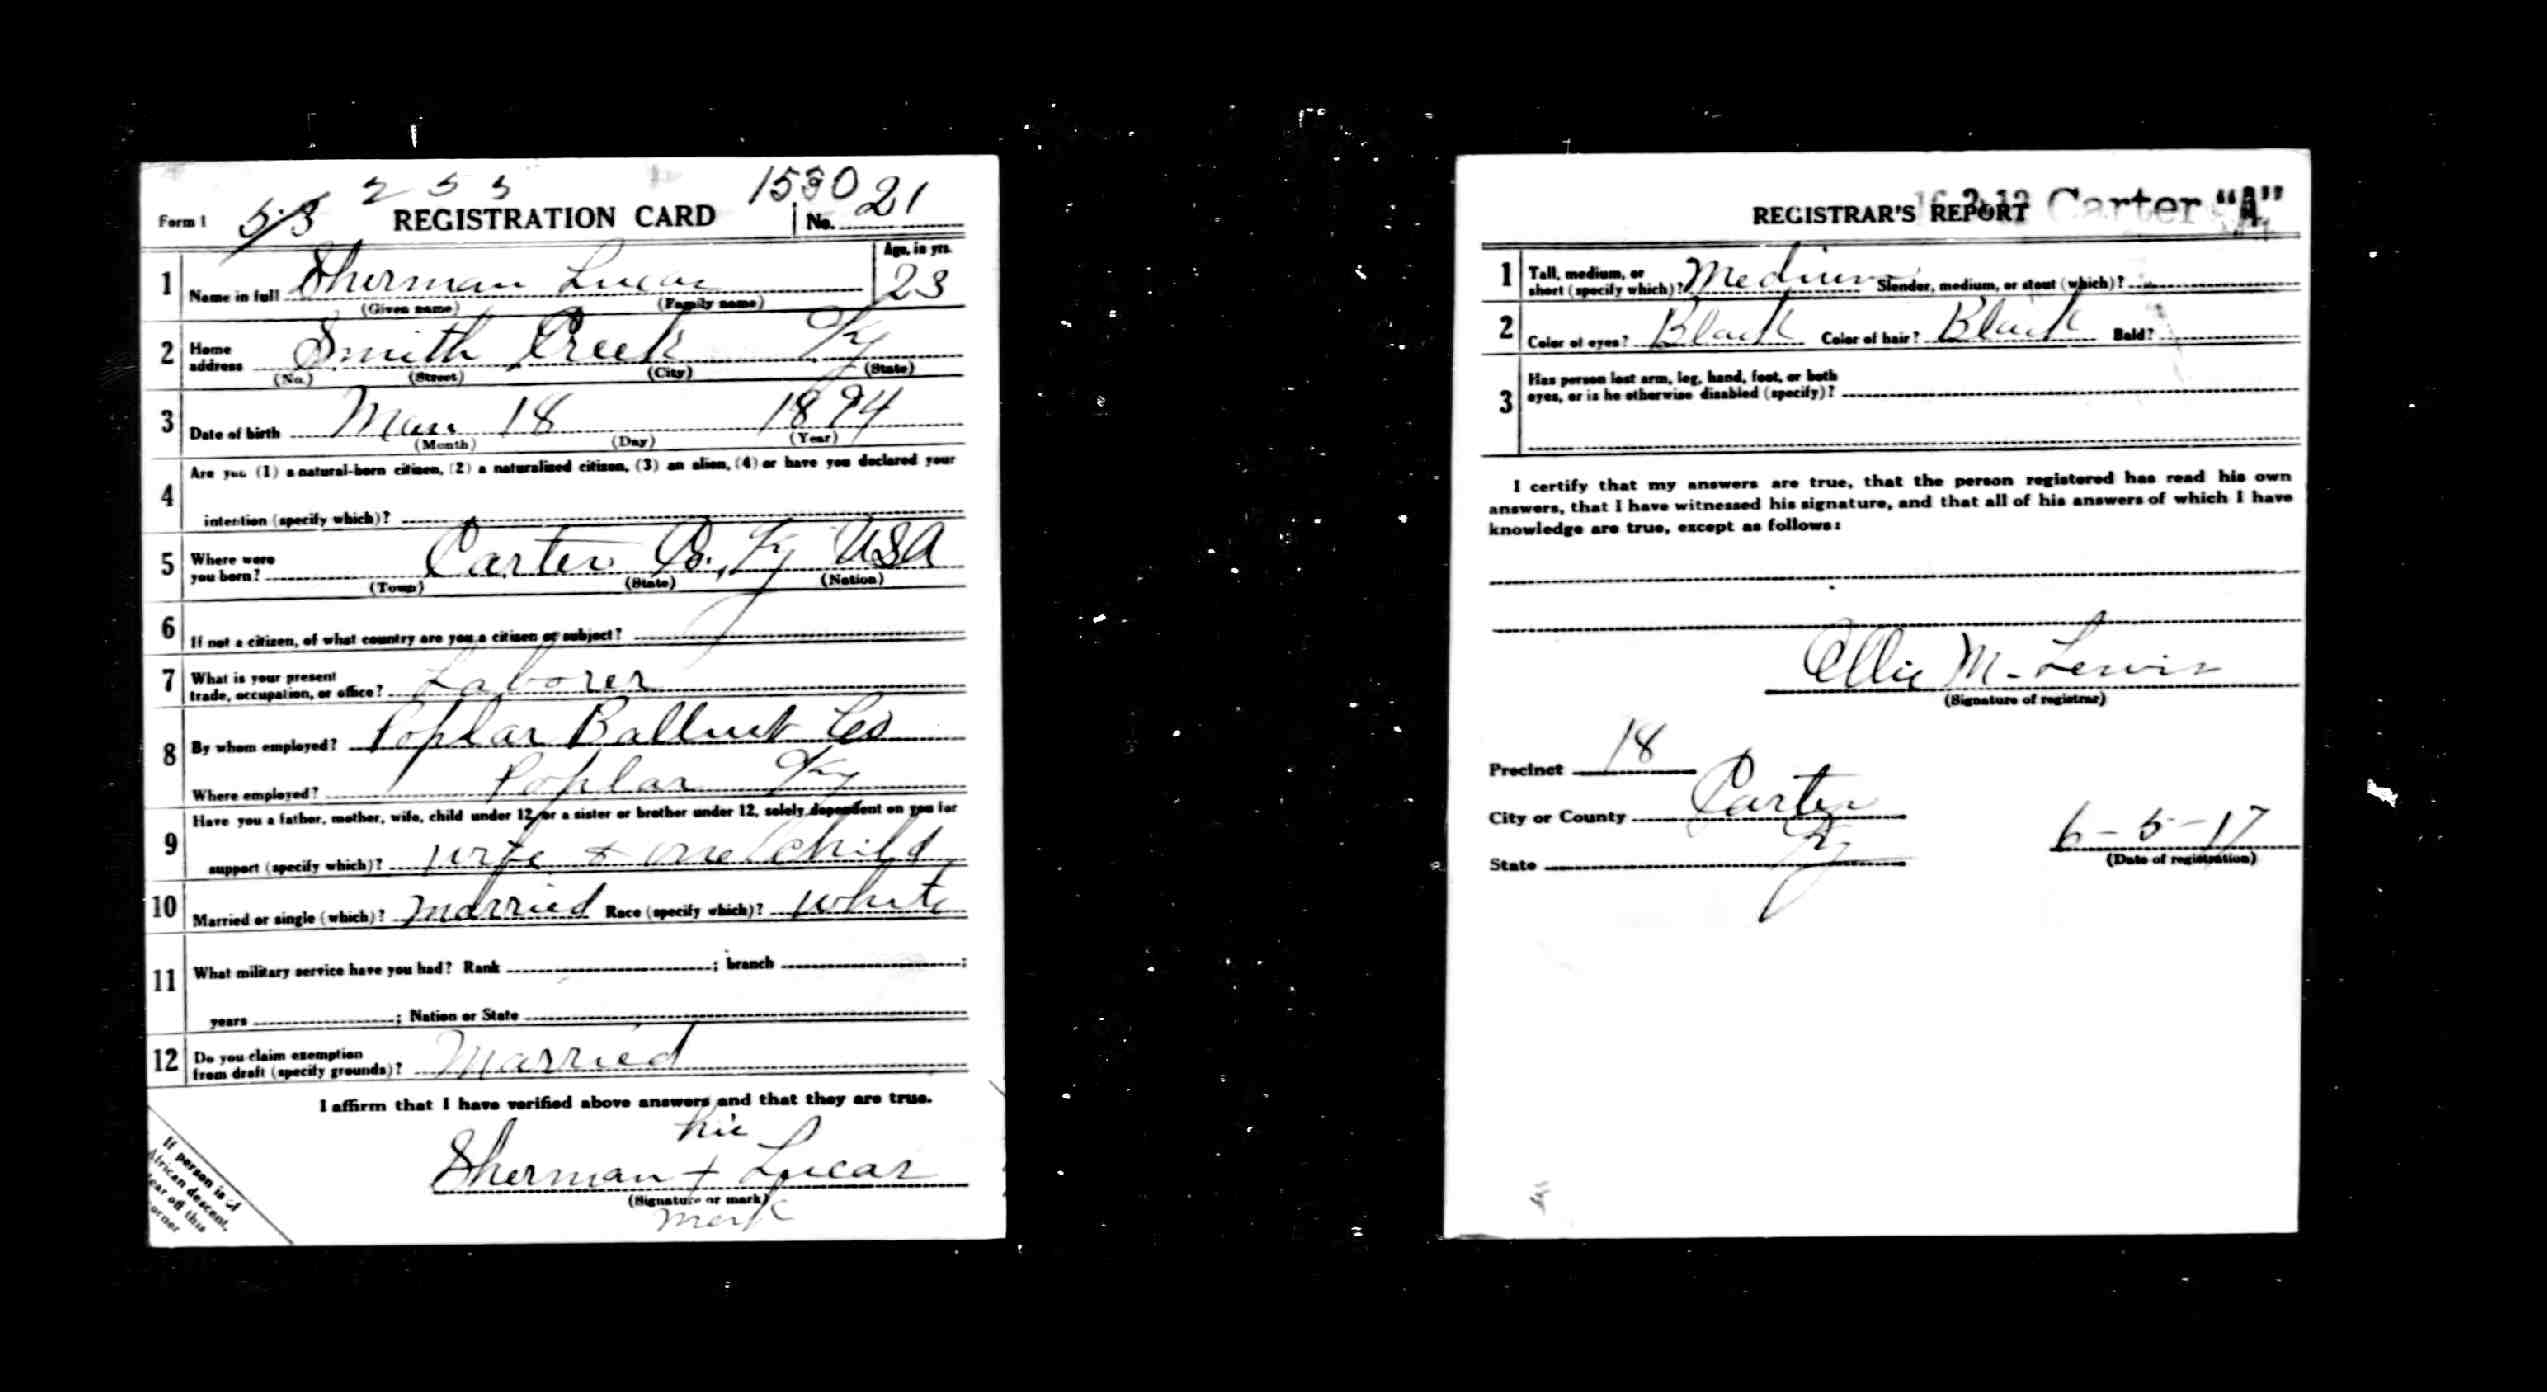 2 5 3
1530
Form 1 53 REGISTRATION CARD No. 21
1 Name in full Sherman Lucas Age, in yrs. 23
(Given name) (Family name)
2 Home address Smith Creek Ky
(No.) (Street) (City) (State)
3 Date of birth Mar 18 1894
(Month) (Day) (Year)
4 Are you (1) a natural-born citizen, (2) a naturalized citizen, (3) an alien, (4) or have you declared your
intention (specify which)?
5 Where were you born? Carter Co., Ky USA
(Town) (State) (Nation)
6 If not a citizen, of what country are you a citizen or subject?
7 What is your present trade, occupation, or office? Laborer
8 By whom employed? Poplar Ballust Co
Where employed? Poplar Ky
9 Have you a father, mother, wife, child under 12, or a sister or brother under 12, solely dependent on you for
support (specify which)? wife & one child
10 Married or single (which)? married Race (specify which)? white
11 What military service have you had? Rank ; branch ;
years ; Nation or State
12 Do you claim exemption from draft (specify grounds)? Married
I affirm that I have verified above answers and that they are true.
his
Sherman + Lucas
(Signature or mark)
mark
If person is of
African descent,
tear off this
corner
REGISTRAR'S REPORT Carter "A"
1 Tall, medium, or short (specify which)? Medium Slender, medium, or stout (which)?
2 Color of eyes? Black Color of hair? Black Bald?
3 Has person lost arm, leg, hand, foot, or both
eyes, or is he otherwise disabled (specify)?
I certify that my answers are true, that the person registered has read his own
answers, that I have witnessed his signature, and that all of his answers of which I have
knowledge are true, except as follows:
Ollie M. Lewis
(Signature of registrar)
Precinct 18
City or County Carter
State Ky
6-5-17
(Date of registration)